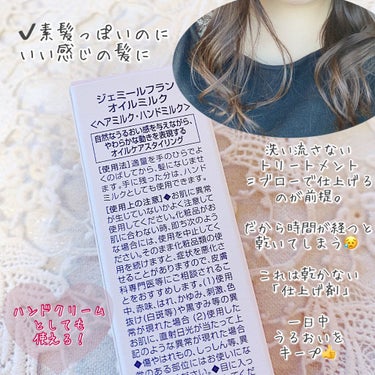 ✓素髪っぽいのに
いい感じの髪に
ジェミールフラン
オイルミルク
<ヘアミルク・ハンドミルク>
自然なうるおい感を与えながら、
やわらかな動きを表現する
オイルケアスタイリング
[使用法]適量を手のひらでよ
くのばしてから、髪になじませ
ます。手に残った分は、ハンド
ミルクとしても使用できます。
[使用上の注意]◆お肌に異常
が生じていないかよく注意して
使用してください。化粧品がお
肌に合わない時、即ち次のよう
な場合には、使用を中止してく
ださい。そのまま化粧品類の使
用を続けますと、症状を悪化さ
せることがありますので、皮膚
科専門医等にご相談されるこ
とをおすすめします。(1)使用
中、赤味、はれ、かゆみ、刺激、色
抜け(白斑等)や黒ずみ等の異
常が現れた場合(2)使用した
お肌に、直射日光が当たって上
記のような異常が現れた場合
◆傷やはれもの、しっしん等、異
常のある部位にはお使いにな
洗い流さない
トリートメント
=ブローで仕上げる
のが前提。
だから時間が経つと
乾いてしまう🥲
これは乾かない
「仕上げ剤」
一日中
うるおいを
キープ👍
ハンドクリーム
としても
使える!